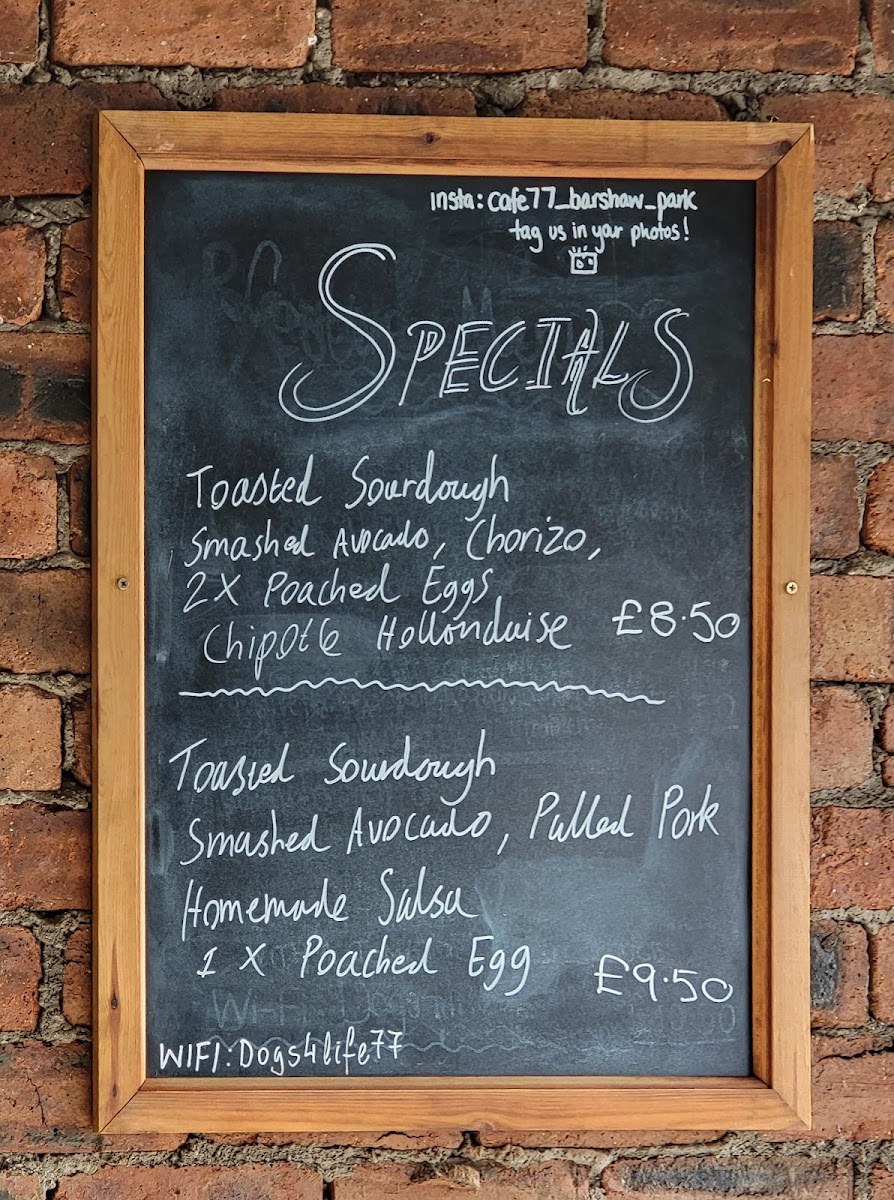 Insta: cafe77_barshaw_park
tag us in your photos!
SPECIALS
Toasted Sourdough
Smashed Avocado, Chorizo,
2X Poached Eggs
Chipotle Hollonduise £8.50
Toasted Sourdough
Smashed Avocado, Pulled Pork
Homemade Salsa
1 X Poached Egg £9.50
WIFI: Dogs4life77